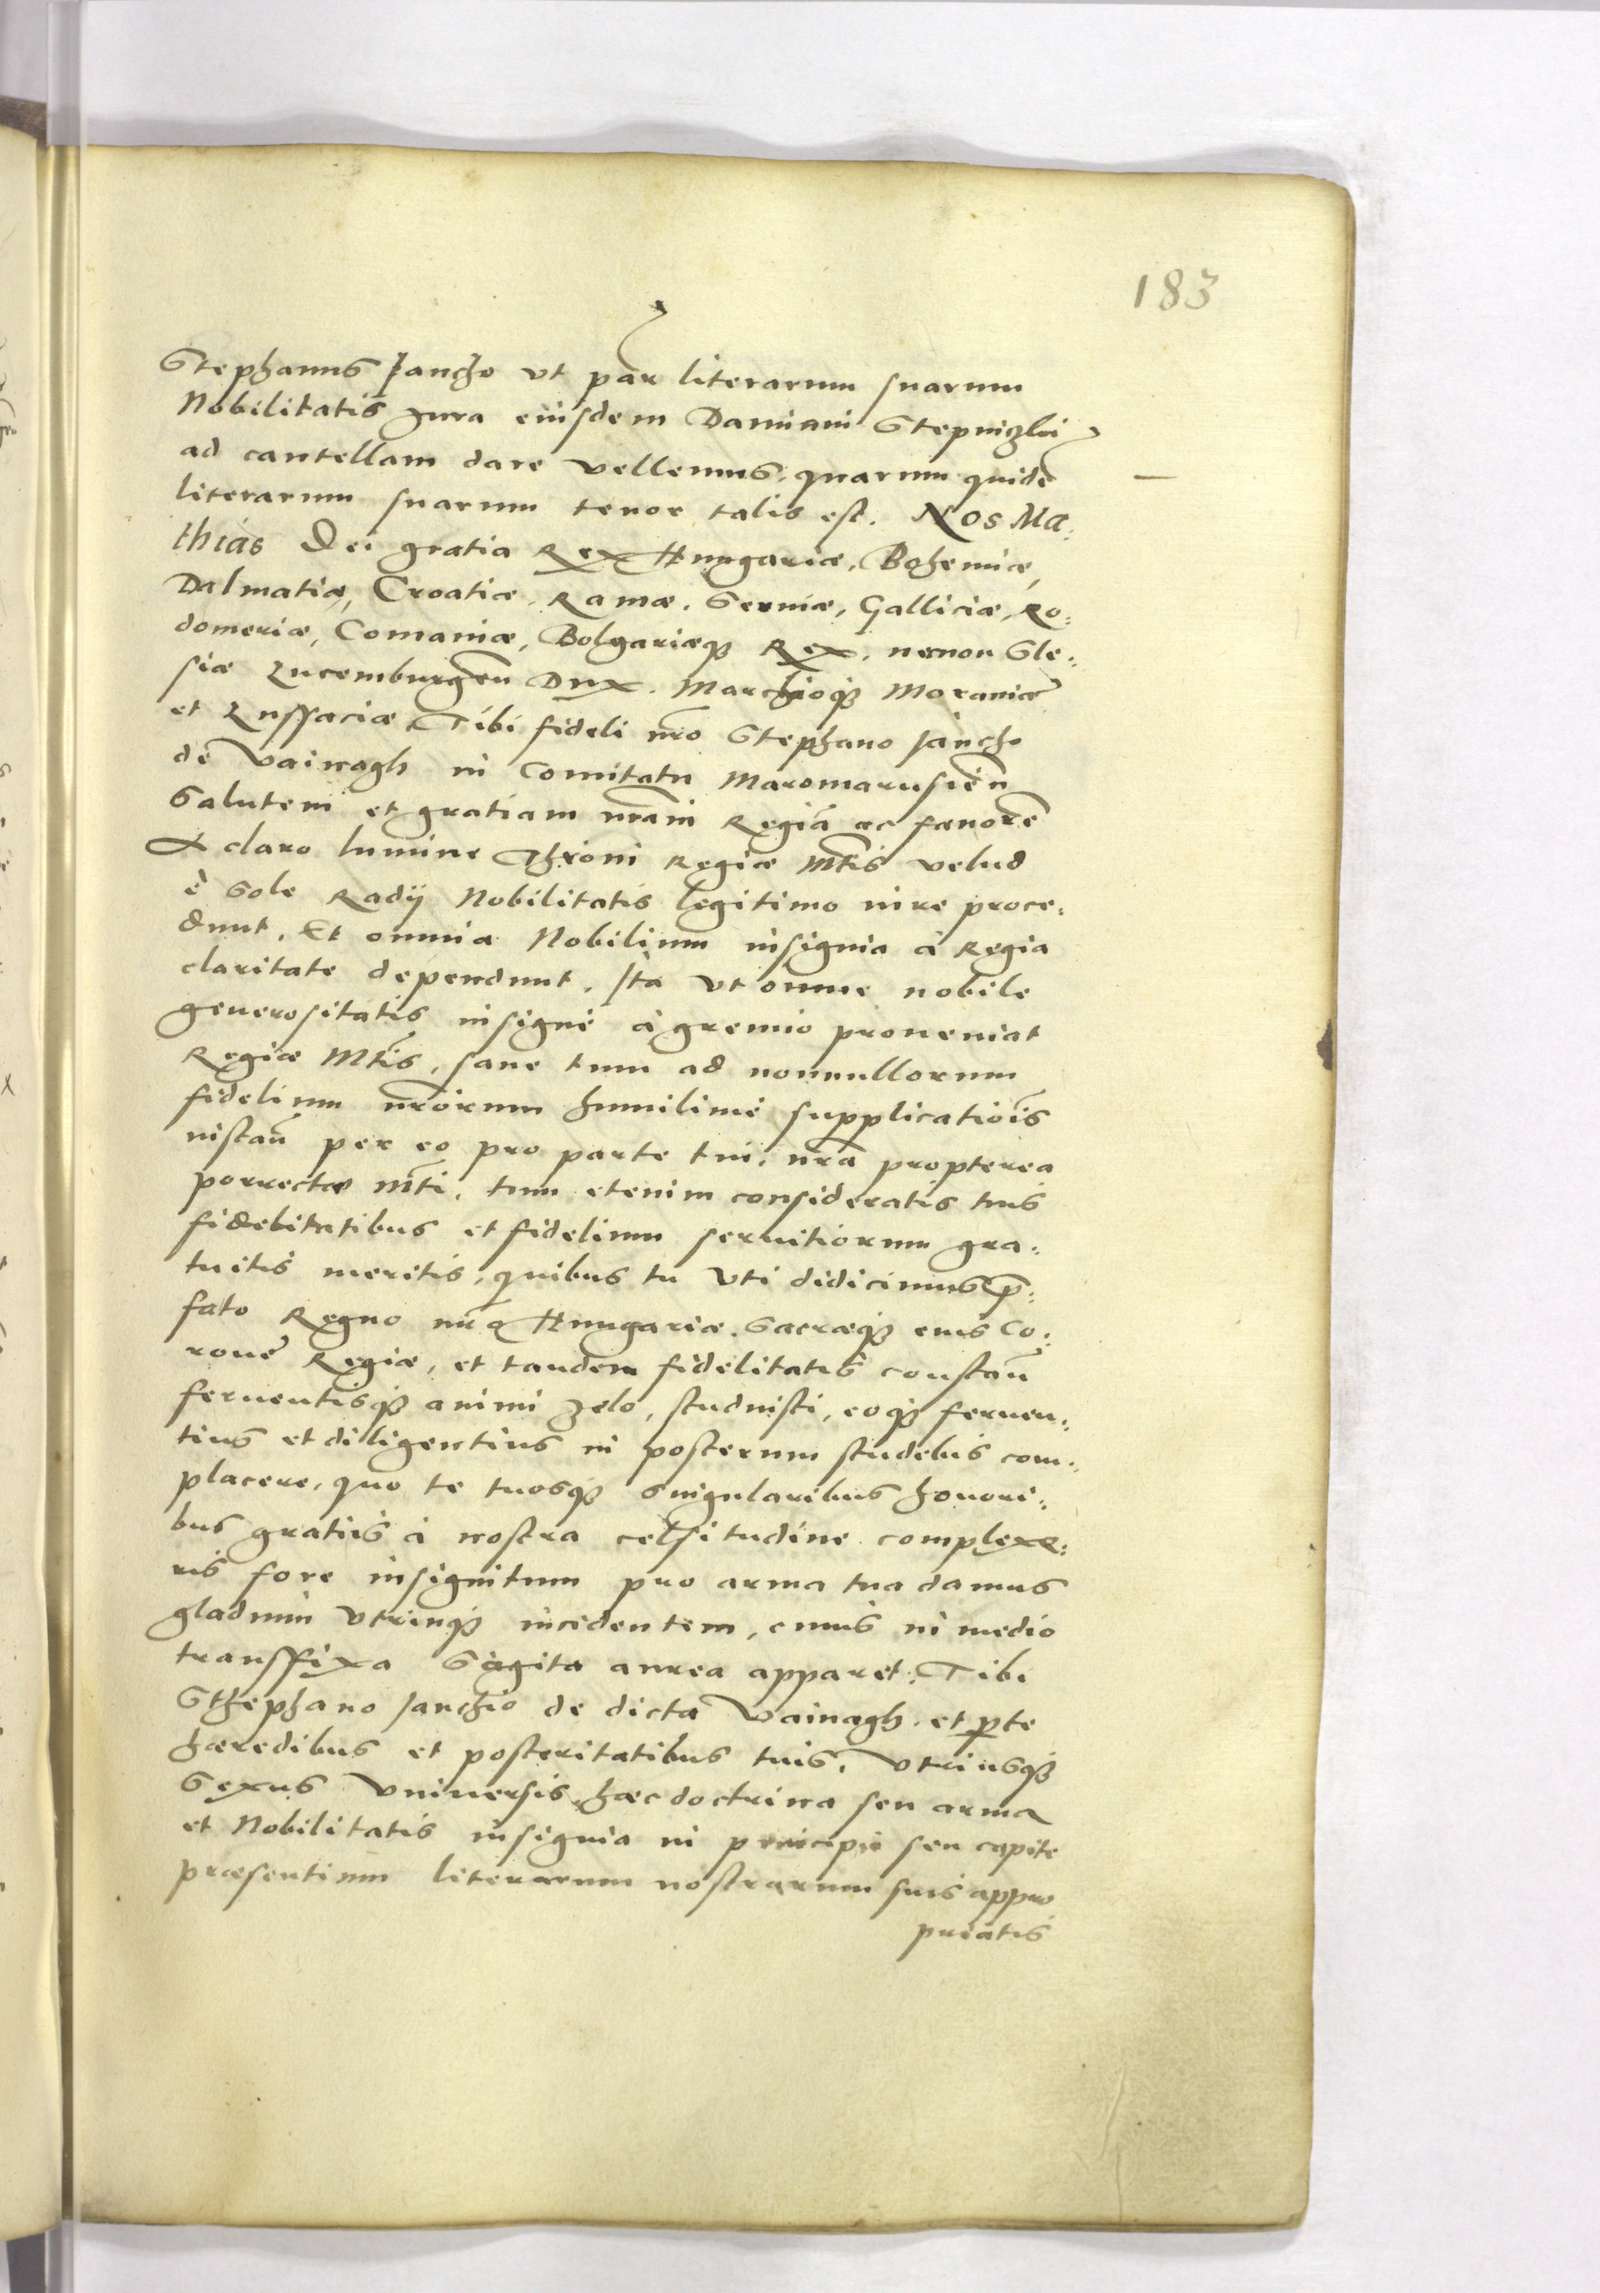 183
Stephanus Jancho vt par literarum suarum
Nobilitatis jura eiusdem Damiani
ad cautellam dare vellemus, quarum quidē
literarum suarum tenor talis est. Nos Ma:
thias Dei gratia Rex Hungariæ, Bohemiæ,
Dalmatiæ, Croatiæ, Ramæ, Seruiæ, Galliciæ, Ro:
domeriæ, Comaniæ, Bolgariæq₃ Rex, necnon Sle:
siæ Lucemburgeñ Dux, Marchioq₃ Morauiæ
et Lussaciæ Tibi fideli nr̃o Stephano Jancho
de Vainagh in Comitatu Maromarusieñ
Salutem et gratiam nr̃am Regiā ac fauorē
A claro lumine Throni Regiæ Mt̃is velud
è Sole Radij Nobilitatis legitimo iure proce:
dunt. Et omnia Nobilium insignia à Regia
claritate dependunt. Ita vt omne nobile
generositatis insigne à gremio proueniat
Regiæ Mt̃is, sane tum ad nonnullorum
fidelium nr̃orum humilime supplicatiõis
instañ per eo pro parte tui, nr̃a propterea
porrectæ Mt̃i, tum etenim consideratis tuis
fidelitatibus et fidelium seruitiorum gra:
tuitis meritis, quibus tu vti didicimus p̃:
fato Regno nr̃o Hungariæ, Sacræq₃ eius Co:
rone Regiæ, et tandem fidelitatis constañ
feruentisq₃ animi zelo, studuisti, eoq₃ feruen:
tius et diligentius in posterum studebis com:
placere, quo te tuosq₃ singularibus honori:
bus gratiis à nostra celsitudine complexe:
ris fore insignitum pro arma tua damus
gladium vtrinq₃ incidentem, cuius in medio
transffixa Sagita aurea apparet, Tibi
Sthephano Janchio de dicta Vainagh et p te
hæredibus et posteritatibus tuis, vtriusq₃
Sexus vniuersis, hæc doctrina seu arma
et Nobilitatis insignia in principio seu capite
præsentium literarum nostrarum suis appro
priatis